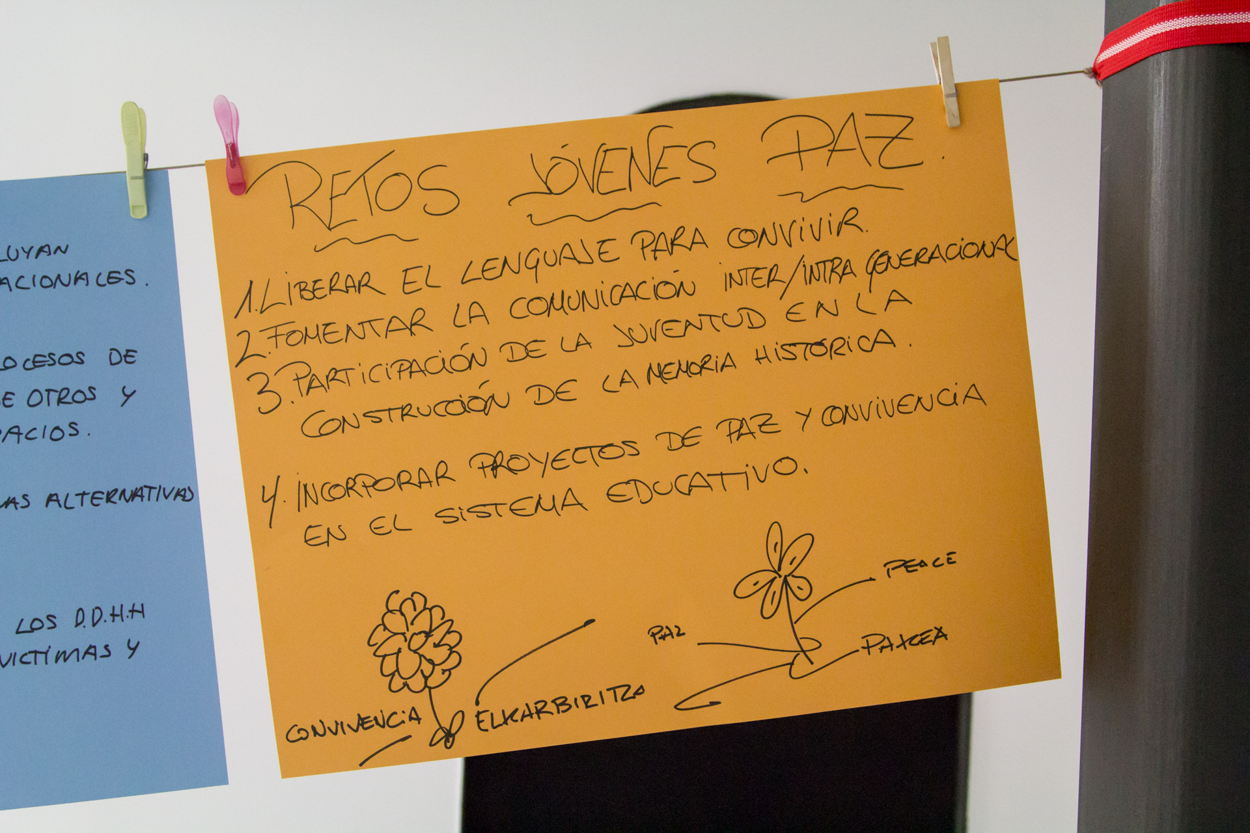 LUYAN
ACIONALES.
OCESOS DE
E OTROS Y
PACIOS.
AS ALTERNATIVAS
LOS D.D.H.H
VICTIMAS Y
RETOS JÓVENES PAZ.
1. LIBERAR EL LENGUAJE PARA CONVIVIR.
2. FOMENTAR LA COMUNICACIÓN INTER/INTRA GENERACIONAL
3. PARTICIPACIÓN DE LA JUVENTUD EN LA
CONSTRUCCIÓN DE LA MEMORIA HISTÓRICA.
4. INCORPORAR PROYECTOS DE PAZ Y CONVIVENCIA
EN EL SISTEMA EDUCATIVO.
PEACE
PAZ
PAKEA
CONVIVENCIA
ELKARBIRITZA